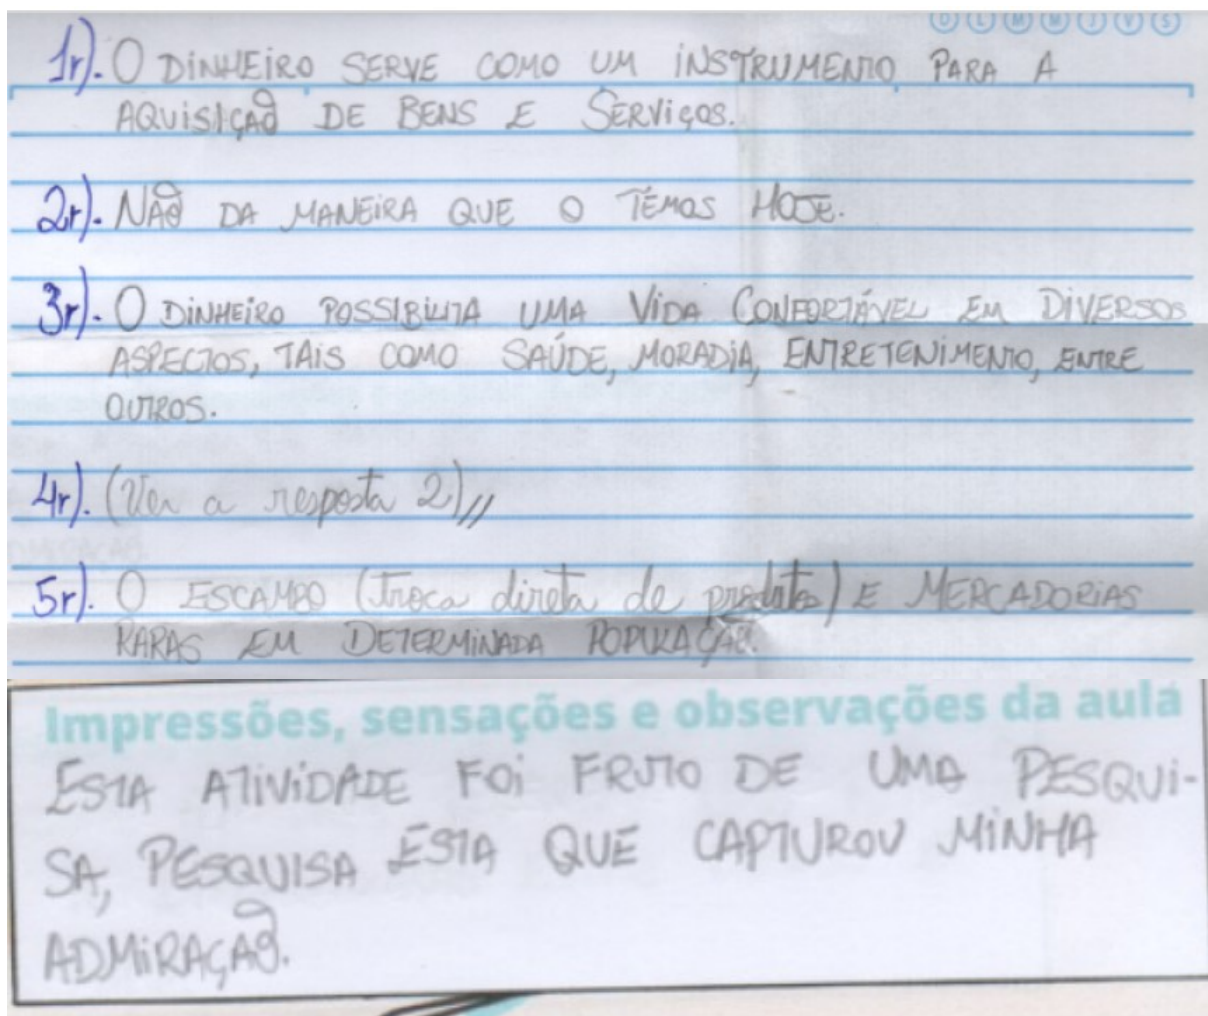 D L M M J V S
1r). O DINHEIRO SERVE COMO UM INSTRUMENTO PARA A
AQUISIÇÃO DE BENS E SERVIÇOS.
2r). NÃO DA MANEIRA QUE O TEMOS HOJE.
3r). O DINHEIRO POSSIBILITA UMA VIDA CONFORTÁVEL EM DIVERSOS
ASPECTOS, TAIS COMO SAÚDE, MORADIA, ENTRETENIMENTO, ENTRE
OUTROS.
4r). (Ver a resposta 2)//
5r). O ESCAMBO (Troca direta de produtos) E MERCADORIAS
RARAS EM DETERMINADA POPULAÇÃO.
Impressões, sensações e observações da aula
ESTA ATIVIDADE FOI FRUTO DE UMA PESQUI-
SA, PESQUISA ESTA QUE CAPTUROU MINHA
ADMIRAÇÃO.